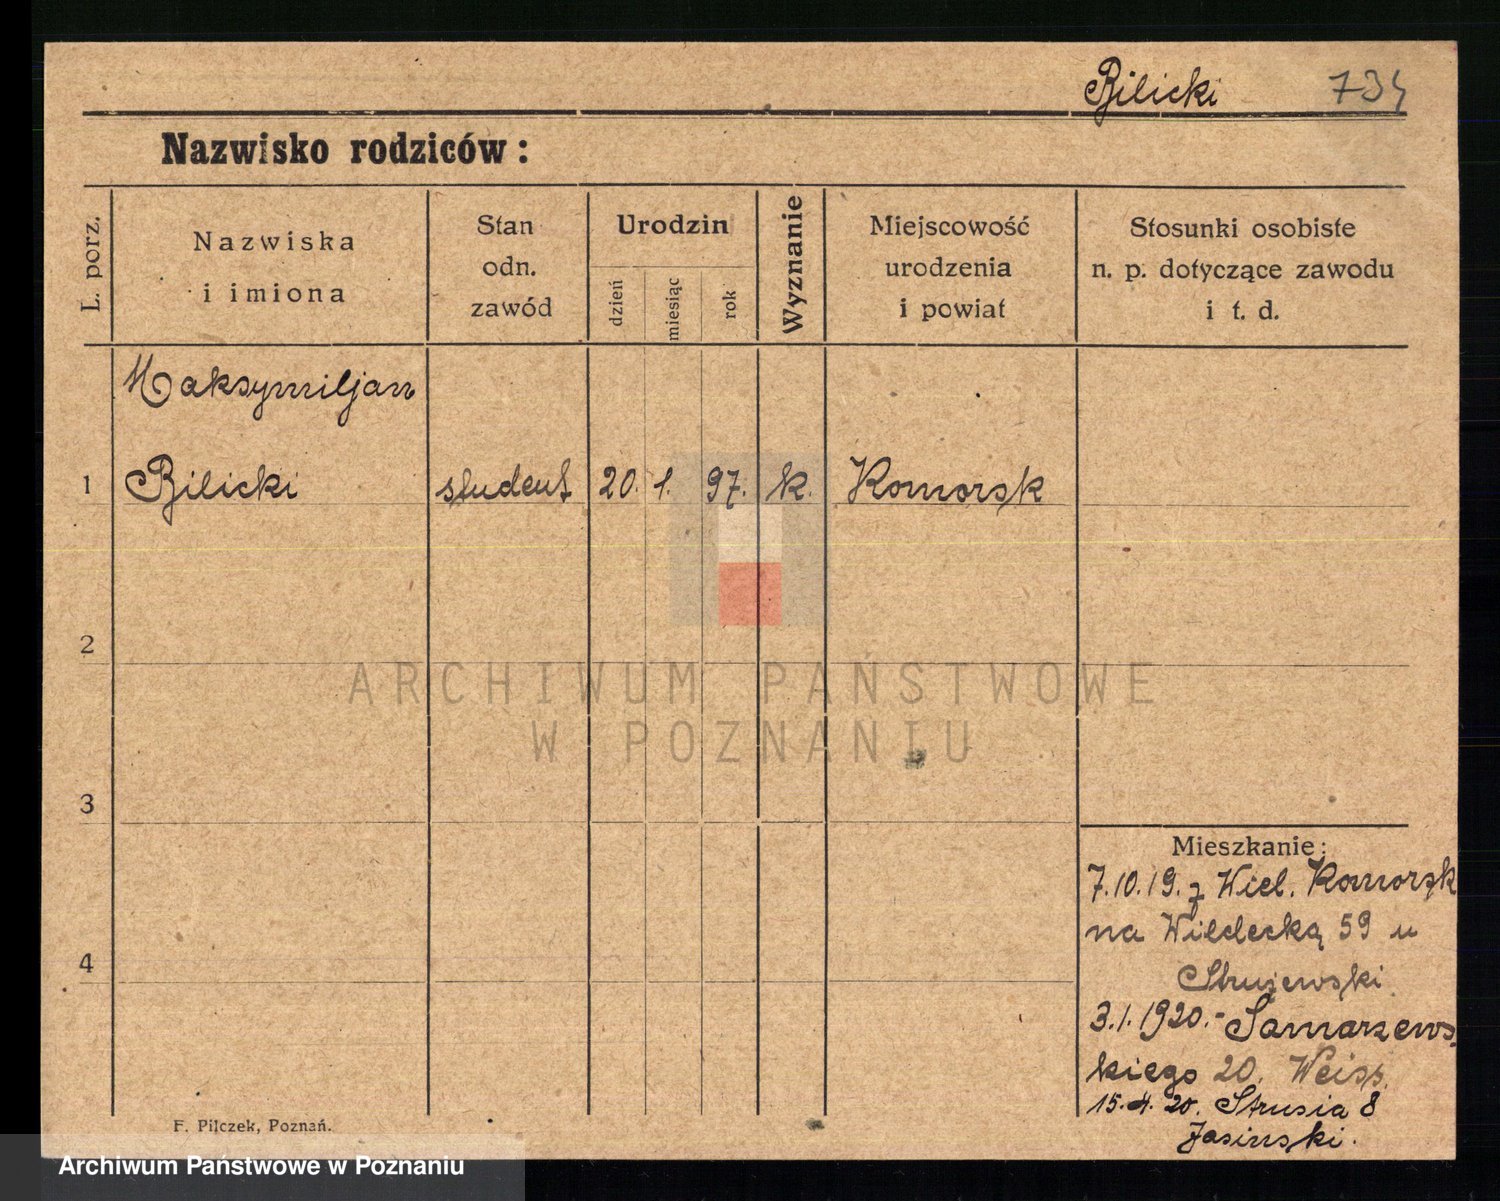 Bilicki 734
Nazwisko rodziców:
L. porz.
Nazwiska
i imiona
Stan
odn.
zawód
Urodzin
dzień
miesiąc
rok
Wyznanie
Miejscowość
urodzenia
i powiat
Stosunki osobiste
n. p. dotyczące zawodu
i t. d.
Maksymiljan
1 Bilicki student 20. 1. 97. k. Komorsk
2
ARCHIWUM PAŃSTWOWE
W POZNANIU
3
Mieszkanie:
7.10.19. z Wiel. Komorsk
na 59 u
4
Strujewski
3.1.1920.- Samarzews-
kiego 20. Weiss.
15.4.20. Strusia 8
Jasinski.
F. Pilczek, Poznań.
Archiwum Państwowe w Poznaniu